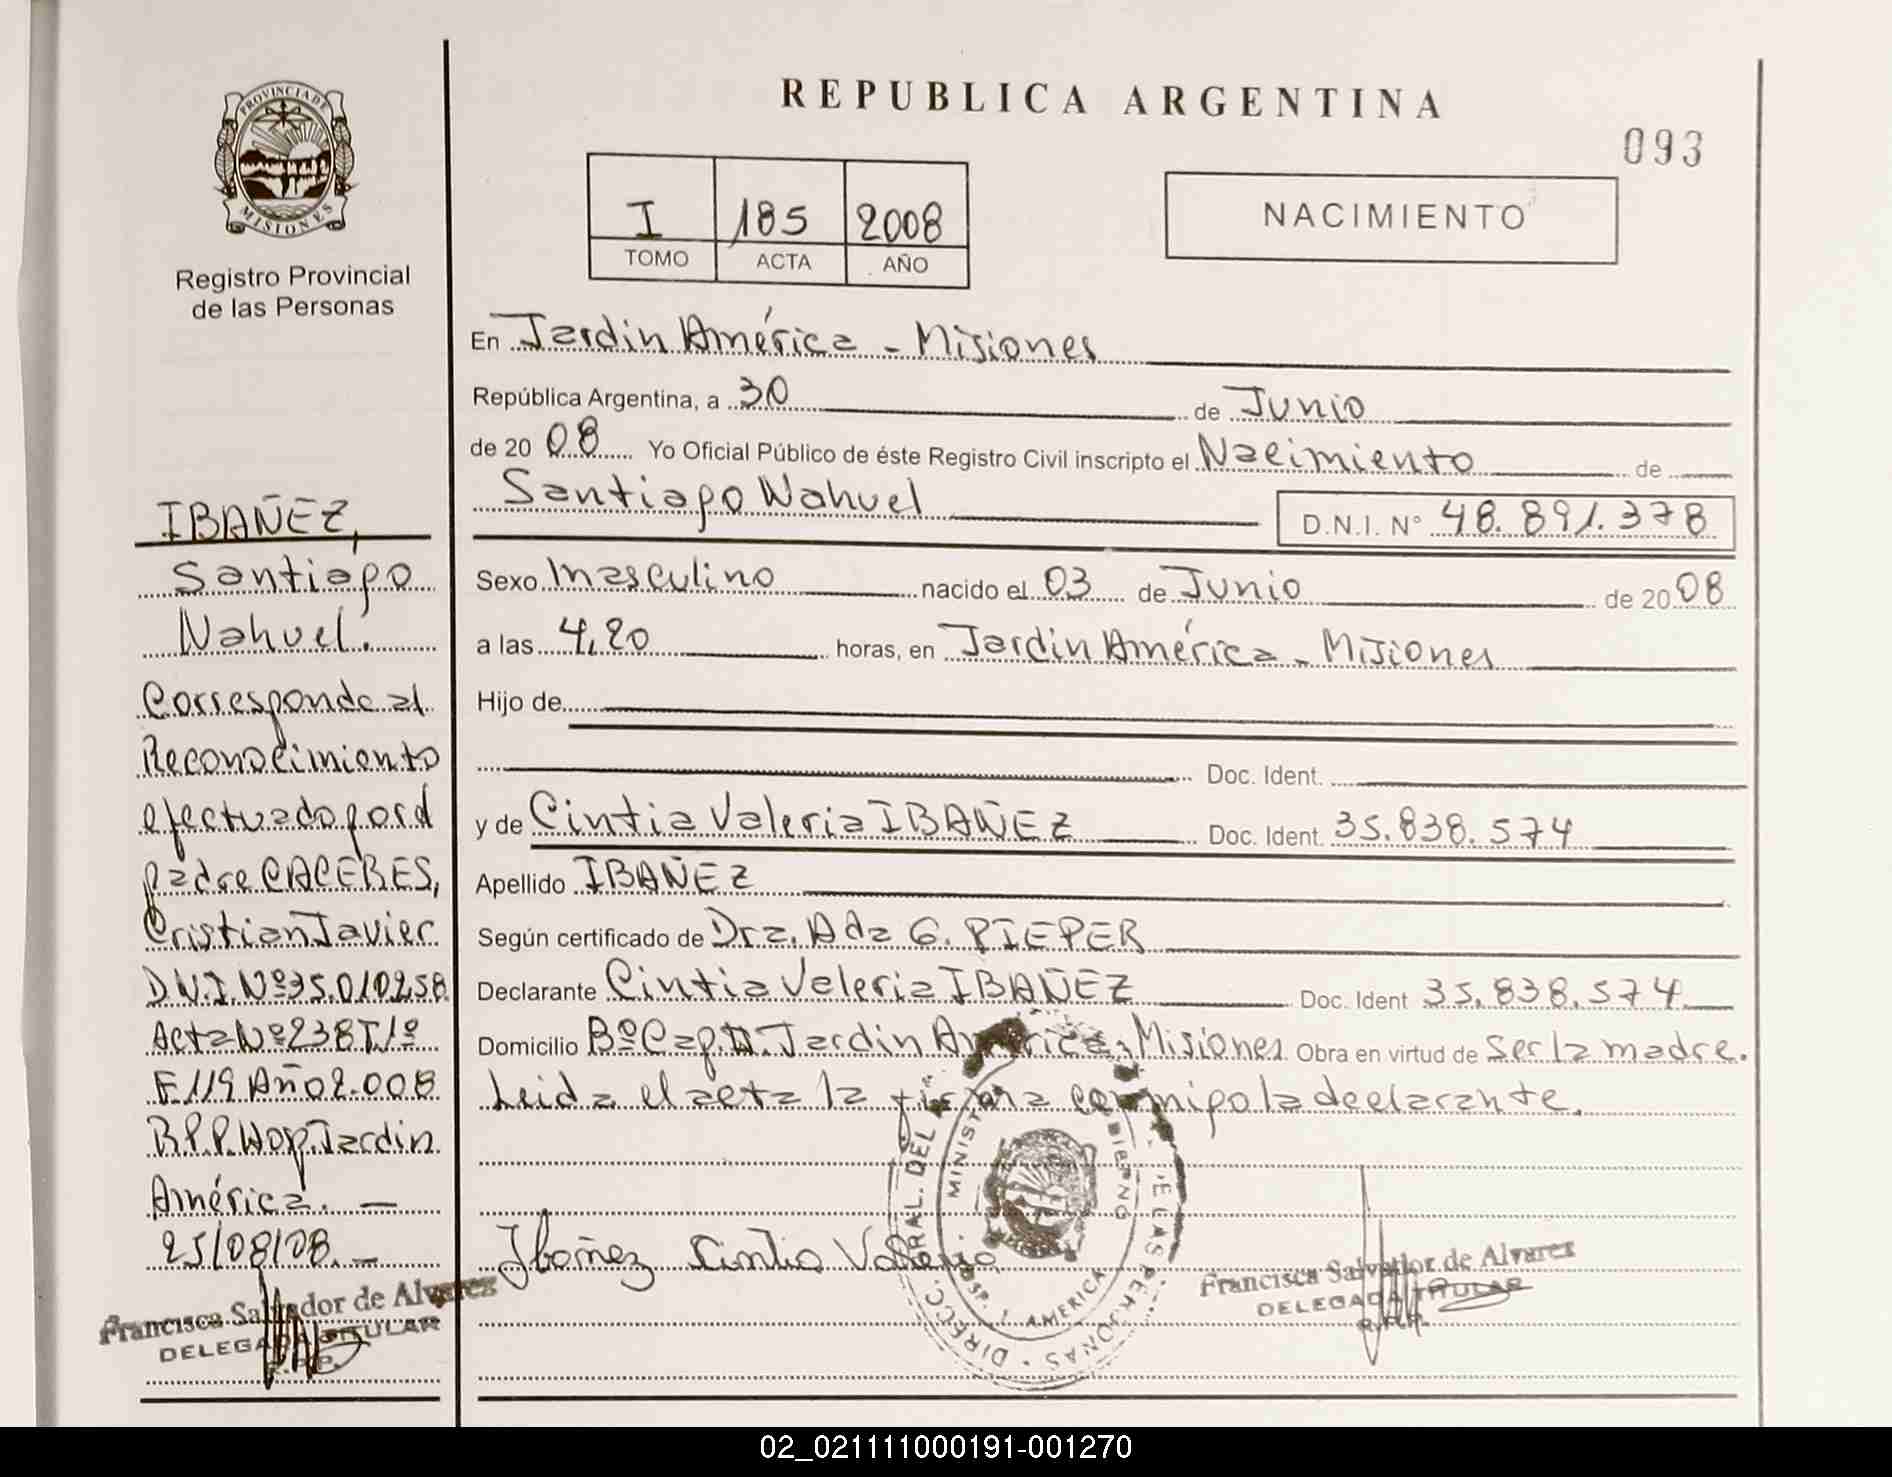 REPUBLICA ARGENTINA
093
PROVINCIA DE
MISIONES
Registro Provincial
de las Personas
I 185 2008
TOMO ACTA AÑO
NACIMIENTO
En Jardin América - Misiones
República Argentina, a 30 de Junio
de 20 08 Yo Oficial Público de éste Registro Civil inscripto el Nacimiento de
Santiago Nahuel
D.N.I. N° 48.891.378
Sexo masculino nacido el 03 de Junio de 20 08
a las 4,20 horas, en Jardin América - Misiones
Hijo de
Doc. Ident.
y de Cintia Valeria IBAÑEZ Doc. Ident. 35.838.574
Apellido IBAÑEZ
Según certificado de Dra. Ada G. PIEPER
Declarante Cintia Valeria IBAÑEZ Doc. Ident 35.838.574
Domicilio Bº Cap. Jardin América, Misiones Obra en virtud de ser la madre.
Leida el acta la firma conmigo la declarante.
Ibañez Cintia Valeria
Francisca Salvador de Alvarez
DELEGADA TITULAR
R.P.P.
IBAÑEZ,
Santiago
Nahuel.
Corresponde al
Reconocimiento
efectuado por el
padre CACERES,
Cristian Javier
D.N.I. Nº 35.010.258
Acta Nº 238 T/1º
F.119 Año 2.008
R.P.P. Hop. Jardin
América. —
25/08/08. —
Francisca Salvador de Alvarez
DELEGADA TITULAR
R.P.P.
02_021111000191-001270